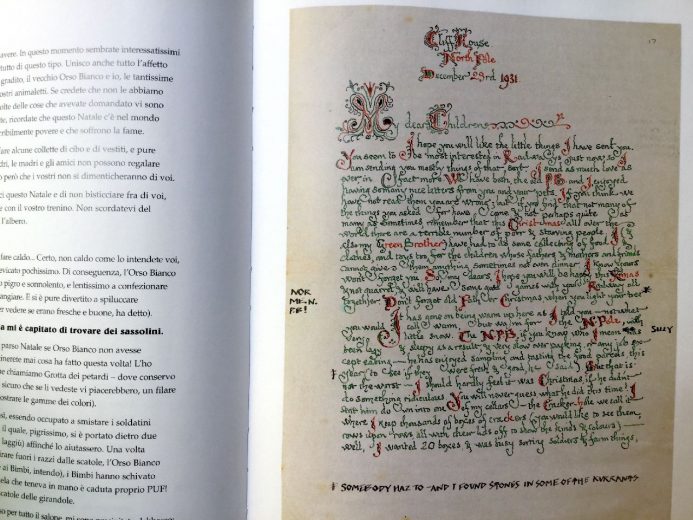 avere. In questo momento sembrate interessatissimi
tutto di questo tipo. Unisco anche tutto l'affetto
gradito, il vecchio Orso Bianco e io, le tantissime
ostri animaletti. Se credete che non le abbiamo
olte delle cose che avevate domandato vi sono
te, ricordate che questo Natale c'è nel mondo
erribilmente povere e che soffrono la fame.
fare alcune collette di cibo e di vestiti, e pure
dri, le madri e gli amici non possono regalare
o però che i vostri non si dimenticheranno di voi.
ci questo Natale e di non bisticciare fra di voi,
e con il vostro trenino. Non scordatevi del
l'albero.
fare caldo... Certo, non caldo come lo intendete voi,
evicato pochissimo. Di conseguenza, l'Orso Bianco
o pigro e sonnolento, e lentissimo a confezionare
angiare. E si è pure divertito a spiluccare
er vedere se erano fresche e buone, ha detto).
a mi è capitato di trovare dei sassolini.
parso Natale se Orso Bianco non avesse
inerete mai cosa ha fatto questa volta! L'ho
e chiamiamo Grotta dei petardi – dove conservo
sicuro che se li vedeste vi piacerebbero, un filare
ostrare le gamme dei colori).
sì, essendo occupato a smistare i soldatini
il quale, pigrissimo, si è portato dietro due
laggiù) affinché lo aiutassero. Una volta
irare fuori i razzi dalle scatole, l'Orso Bianco
e ai Bimbi, intendo), i Bimbi hanno schivato
ela che teneva in mano è caduta proprio PUF!
catole delle girandole.
Cliff House
North Pole
December 23rd 1931.
My dear Children
I hope you will like the little things I have sent you.
You seem to be most interested in Railways just now, so I
am sending you mostly things of that sort. I send as much love as
ever, in fact more. We have both, the old P.B. and I, enjoyed
having so many nice letters from you and your pets. If you think we
have not read them you are wrong; but if you find that not many of
the things you asked for have come, & not perhaps quite as
many as sometimes, remember that this Christmas all over the
world there are a terrible number of poor & starving people. I
(& also my Green Brother) have had to do some collecting of food, &
clothes, and toys too, for the children whose fathers & mothers and friends
cannot give them anything, sometimes not even dinner. I know yours
won't forget you. So, my dears, I hope you will be happy this Xmas
& not quarrel, & will have some good games with your Railway all
together. Don't forget old Father Christmas, when you light your tree
NOR
ME·N·
FE!
It has gone on being warm up here as I told you — not what
you would call warm, but warm for the N. Pole, with
very little snow. The N.P.B. if you know who I mean, has
been lazy & sleepy as a result, & very slow over packing, or any job
except eating — he has enjoyed sampling and tasting the food parcels this
year (to see if they were fresh & good, he said). But that is
not the worst — I should hardly feel it was Christmas if he didn't
do something ridiculous. You will never guess what he did this time! I
sent him down into one of my cellars — the Cracker-hole we call it —
where I keep thousands of boxes of crackers (you would like to see them,
rows upon rows, all with their lids off to show the kinds & colours) —
Well, I wanted 20 boxes, & was busy sorting soldiers & farm things,
SOMEBODY HAZ TO — AND I FOUND STONES IN SOME OF THE KURRANTS